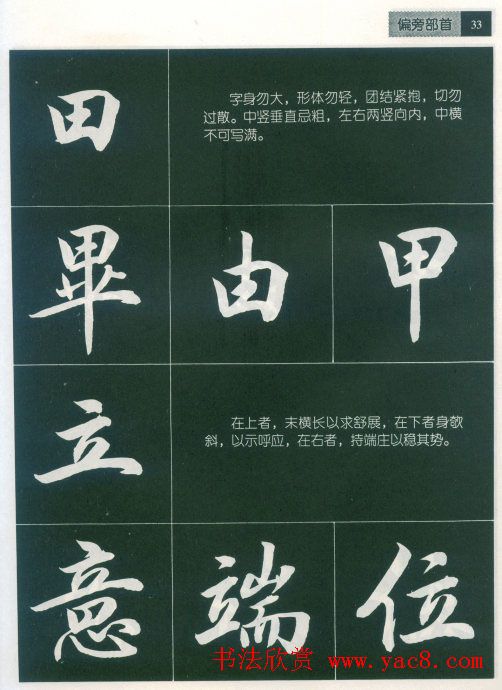 偏旁部首 33
田
字身勿大，形体勿轻，团结紧抱，切勿
过散。中竖垂直忌粗，左右两竖向内，中横
不可写满。
畢 由 甲
立
在上者，末横长以求舒展，在下者身欹
斜，以示呼应，在右者，持端庄以稳其势。
意 端 位
书法欣赏 www.yac8.com